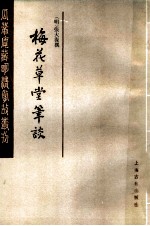 〔明〕張大復撰
梅花草堂筆談
上海古籍出版社
瓜蒂庵藏明清掌故叢刊